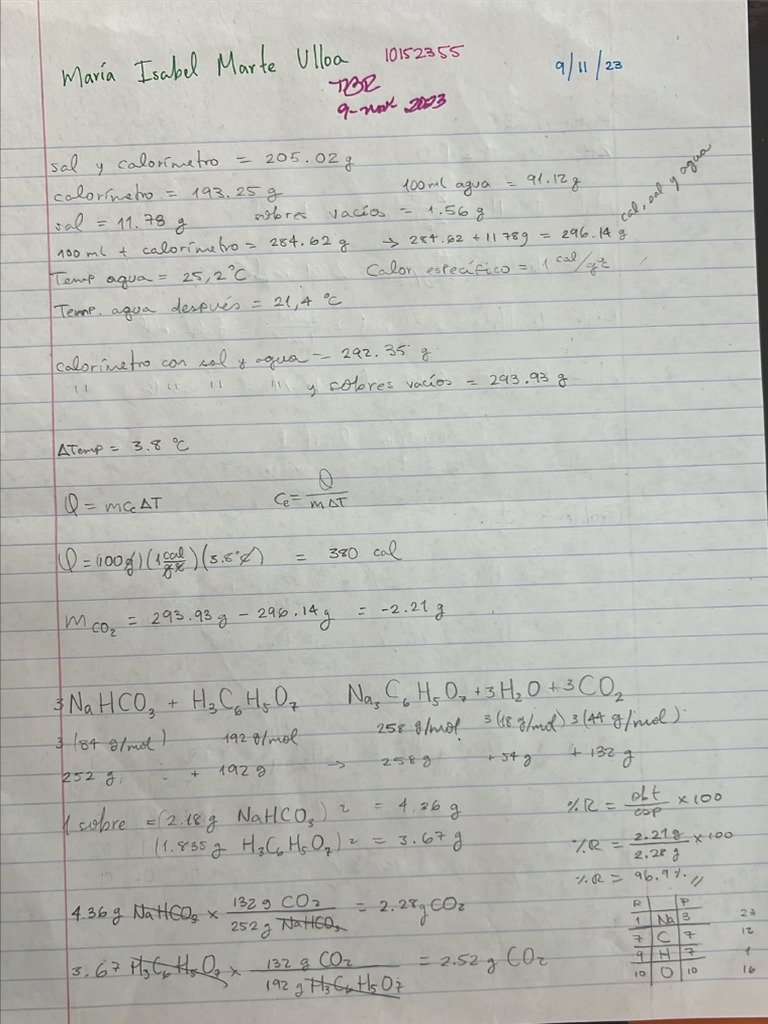 María Isabel Marte Ulloa 10152355 9/11/23
9-nov 2023
sal y calorímetro = 205.02 g
calorímetro = 193.25 g 100 ml agua = 91.12 g
sal = 11.78 g sobres vacíos = 1.56 g
100 ml + calorímetro = 284.62 g → 284.62 + 11 78g = 296.14 g cal, sal y agua
Temp agua = 25,2°C Calor específico = 1 cal/g°C
Temp. agua después = 21,4 °C
calorímetro con sal y agua = 292.35 g
" " " " y sobres vacíos = 293.93 g
ΔTemp = 3.8 °C
Q = mCeΔT Ce = Q / mΔT
Q = (100g) (1 cal/g°C) (3.8°C) = 380 cal
mCO2 = 293.93 g - 296.14 g = -2.21 g
3NaHCO3 + H3C6H5O7 Na3C6H5O7 + 3H2O + 3CO2
3 (84 g/mol) 192 g/mol 258 g/mol 3(18 g/mol) 3(44 g/mol)
252 g + 192 g → 258 g + 54 g + 132 g
1 sobre = (2.18 g NaHCO3) 2 = 4.36 g %R = obt/esp × 100
(1.835 g H3C6H5O7) 2 = 3.67 g %R = 2.21 g/2.28 g × 100
%R = 96.9 %
4.36 g NaHCO3 × 132 g CO2 / 252 g NaHCO3 = 2.28 g CO2
3.67 H3C6H5O7 × 132 g CO2 / 192 g H3C6H5O7 = 2.52 g CO2
R P
1 Na 3 23
7 C 7 12
9 H 7 1
10 O 10 16